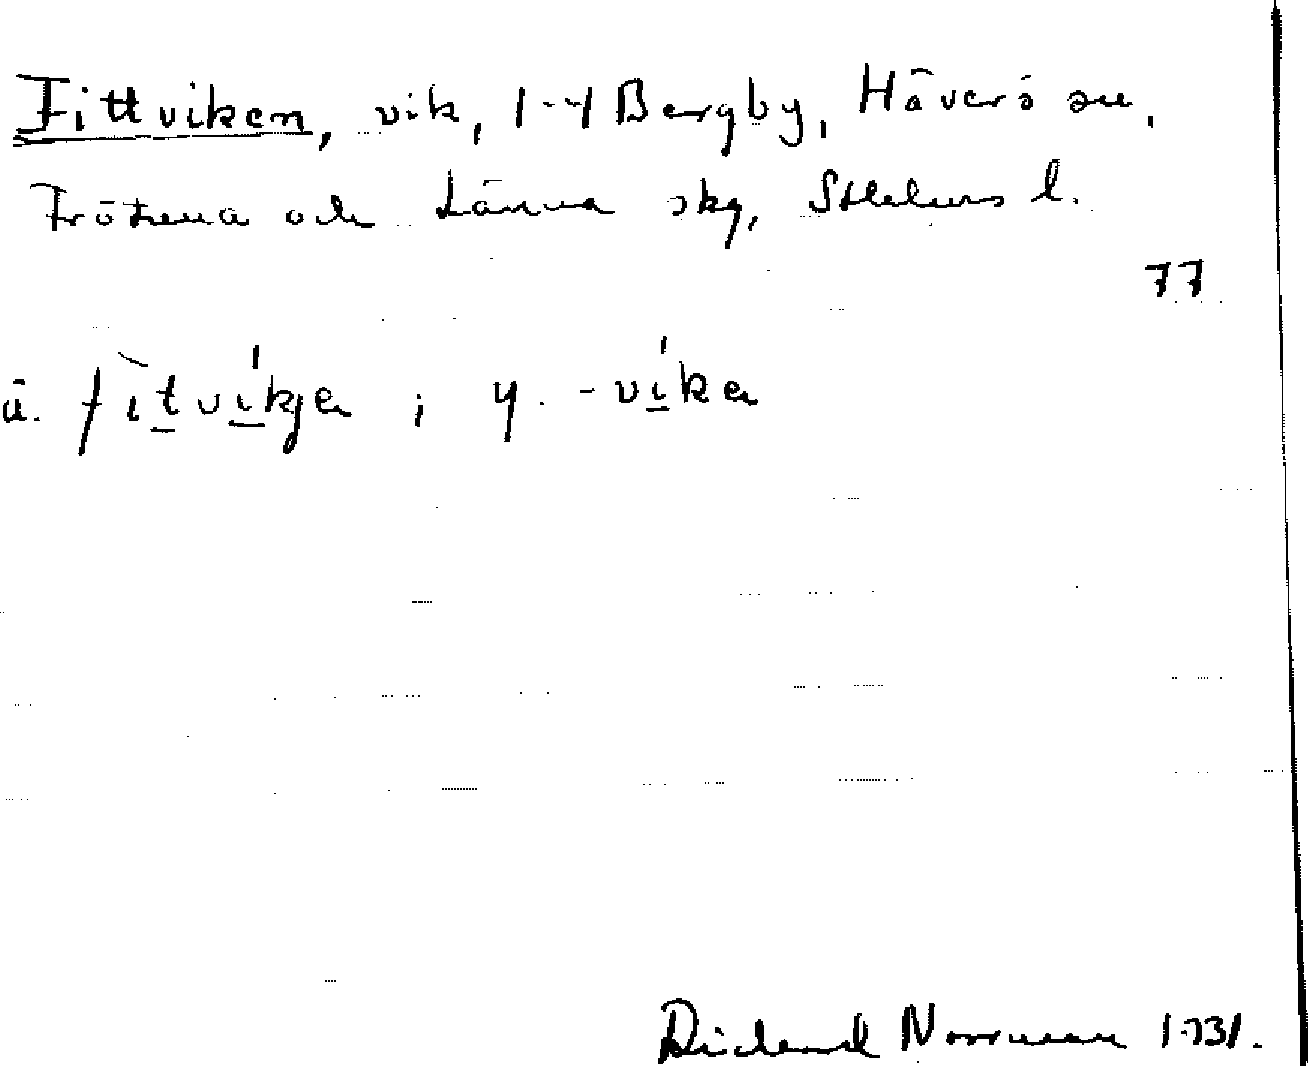 Fittviken, vik, 1-4 Bergby, Häverö sn,
Frötuna och Länna skg, Sthlms l.
77
ä. fìtvíkjen ; y. -víken
Rickard Norrman 1931.